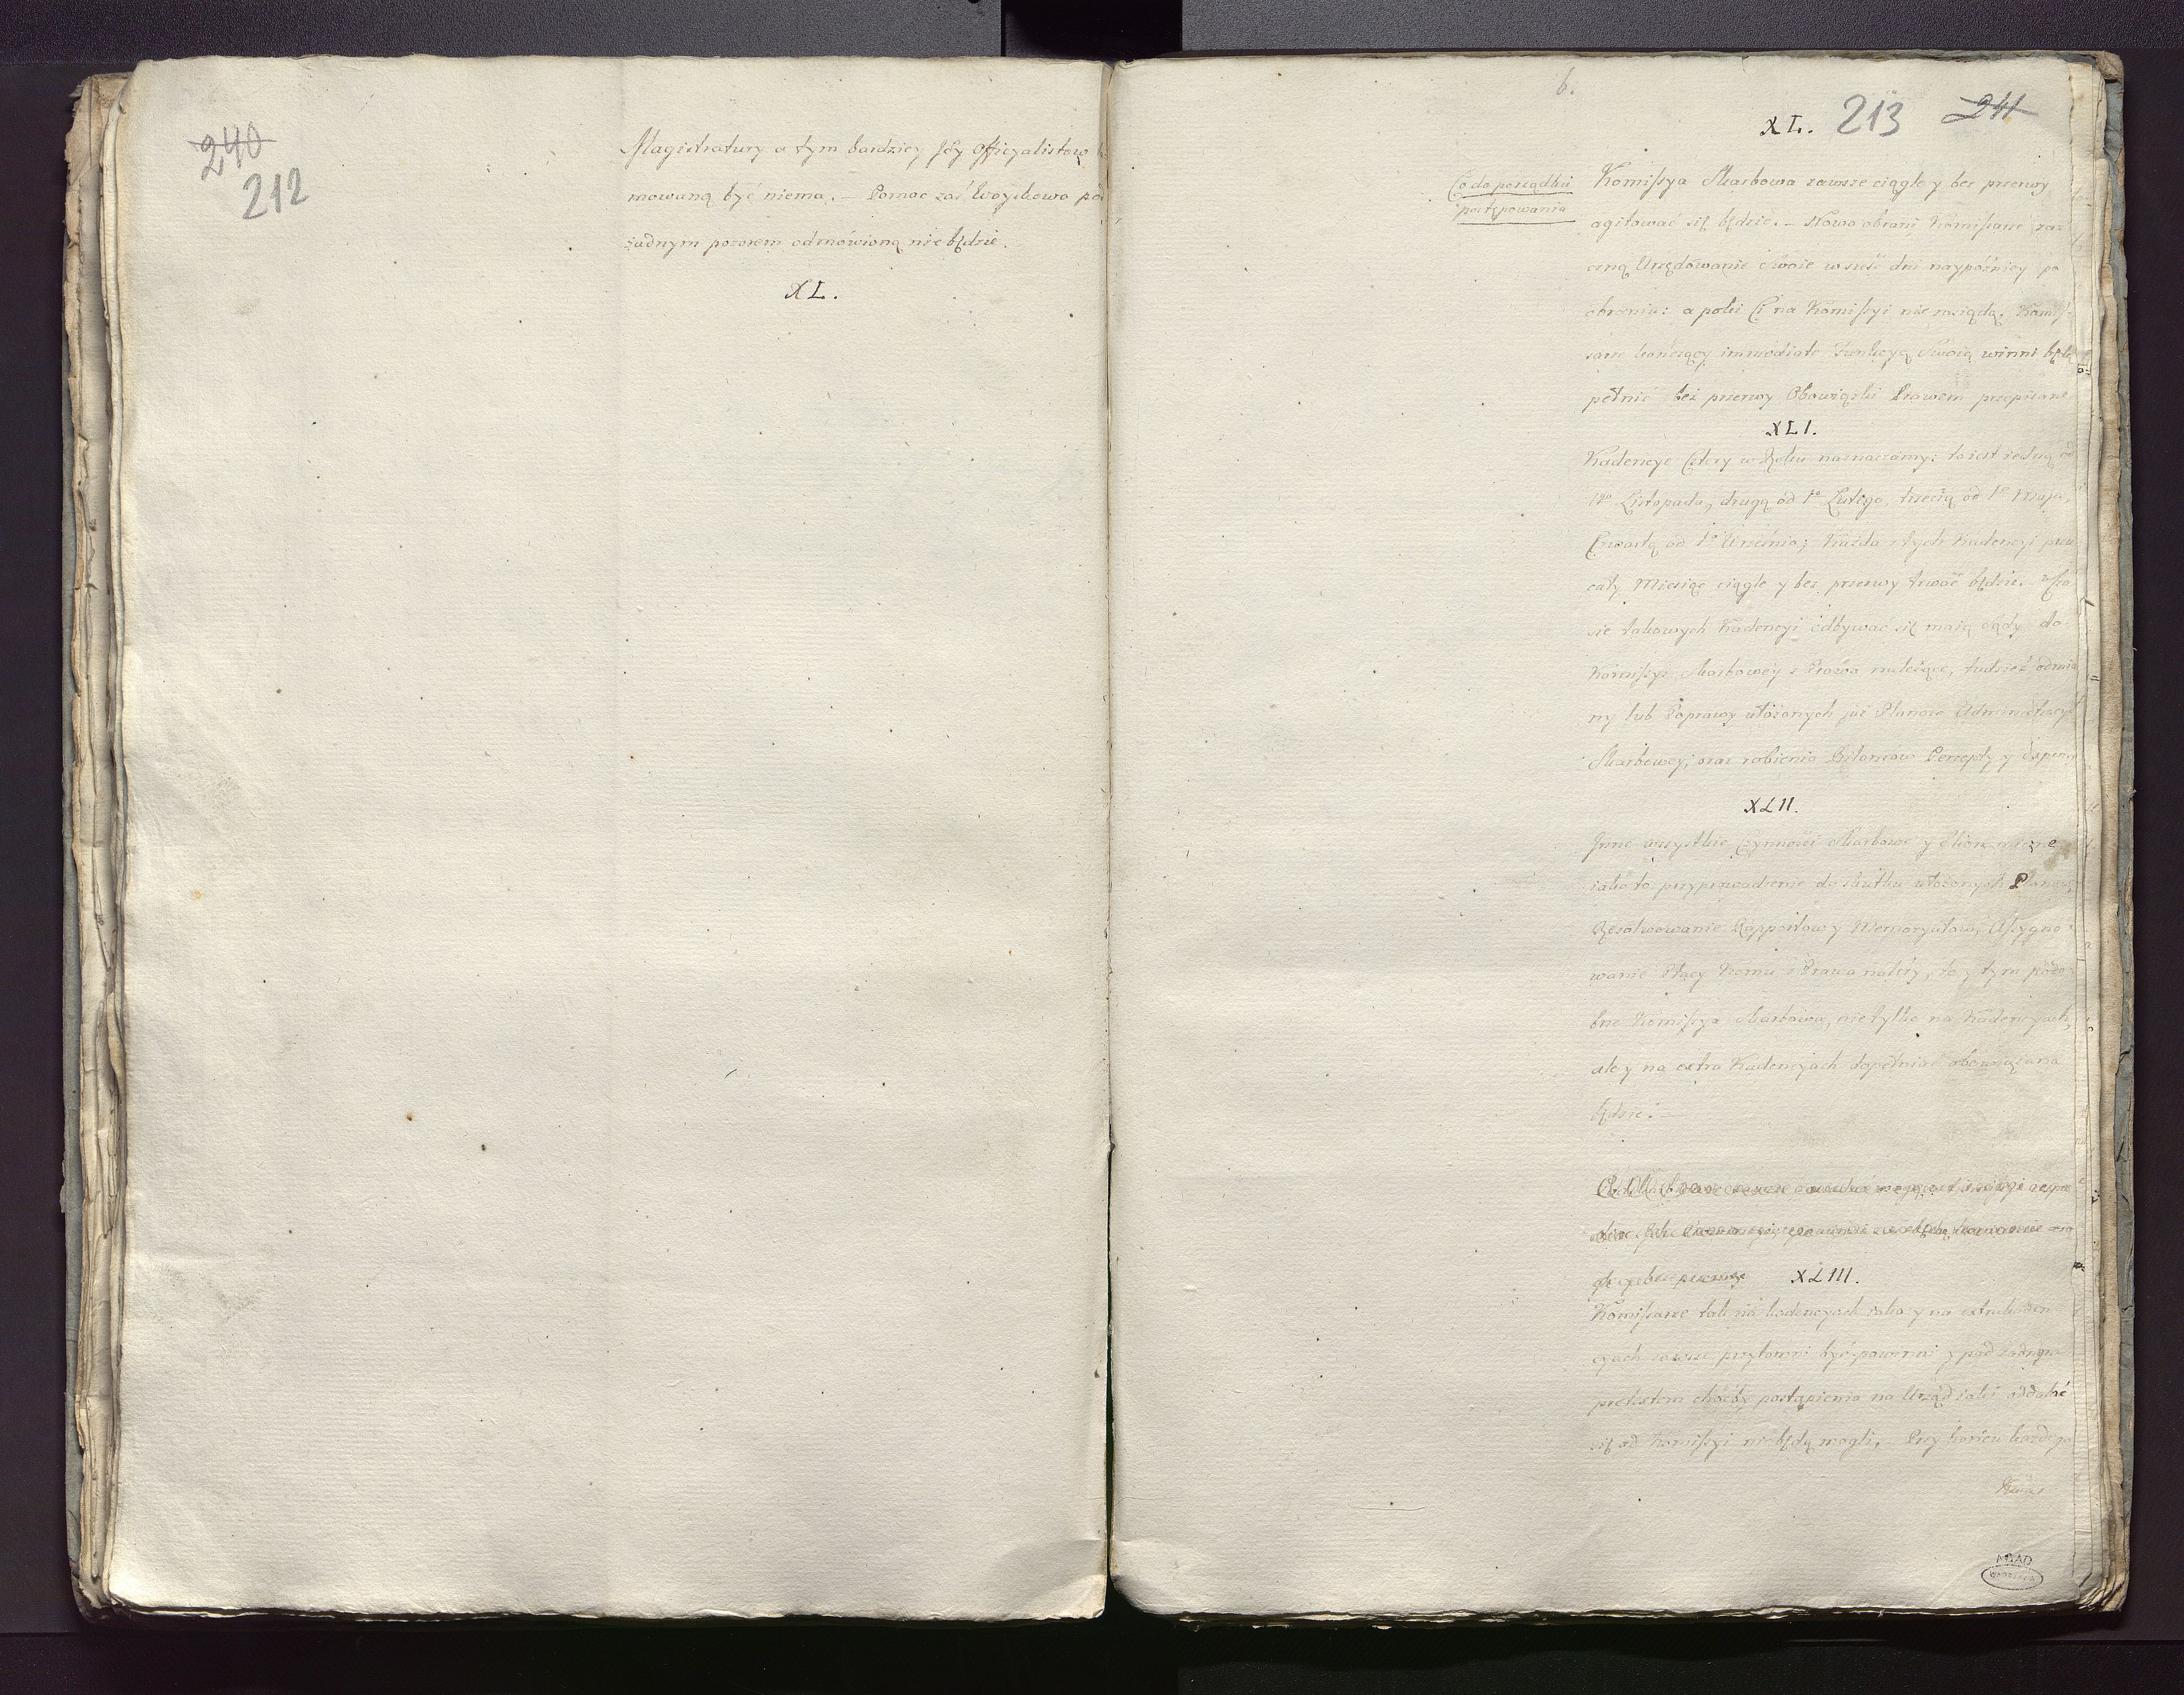 240
212
Magistratury a tym bardziey Jey Officyalistow
mowaną być niema. – Pomoc zaś Woyskowa pod
żadnym pozorem odmówioną nie będzie.
XL.
6.
XL. 213 241
Co do porządku
postępowania
Komissya Skarbowa zawsze ciągle y bez przerwy
agitować się będzie. – Nowo obrani Komissarze zas
czną Urzędowanie Swoie w sześć dni naypóźniey po
obraniu: a poki Ci na Komissyi nie zasiędą, Komis-
sarze kończący immediate Funkcyą Swoią winni będą
pełnić bez przerwy Obowiązki Prawem przepisane
XLI.
Kadencye Cztery w Roku naznaczamy: to iest iedną od
Listopada, drugą od 1o Lutego, trzecią od 1o Maja,
Czwartą od 1o Września; Każda z tych Kadencyi przez
cały Miesiąc ciągle y bez przerwy trwać będzie.
sie takowych Kadencyi odbywać się maią sądy do
Komissyi Skarbowey z Prawa należące, tudzież odmia
ny lub Poprawy ułożonych już Planow Administracyi
Skarbowey, oraz robienia Bilansow Percepty y Expens
XLII.
Jnne wszystkie czynności Skarbowe y Ekonomiczne
iako to przyprowadzenie do skutku ułożonych Planow,
Rezolwowanie Rapportow y Memoryałow, Assygno-
wanie Płacy komu z Prawa należy, to y tym podo
bne Komissya Skarbowa, nie tylko na Kadencyach,
ale y na extra Kadencyach dopełniać obowiązana
będzie. –
XLIII.
Komissarze tak na kadencyach iako y na extrakaden
cyach zawsze przytomni być powinni y pod żadnym
pretextem choćby postąpienia na Urząd iaki oddalić
się od Komissyi nie będą mogli. Przy końcu każdego
AGAD
WARSZAWA